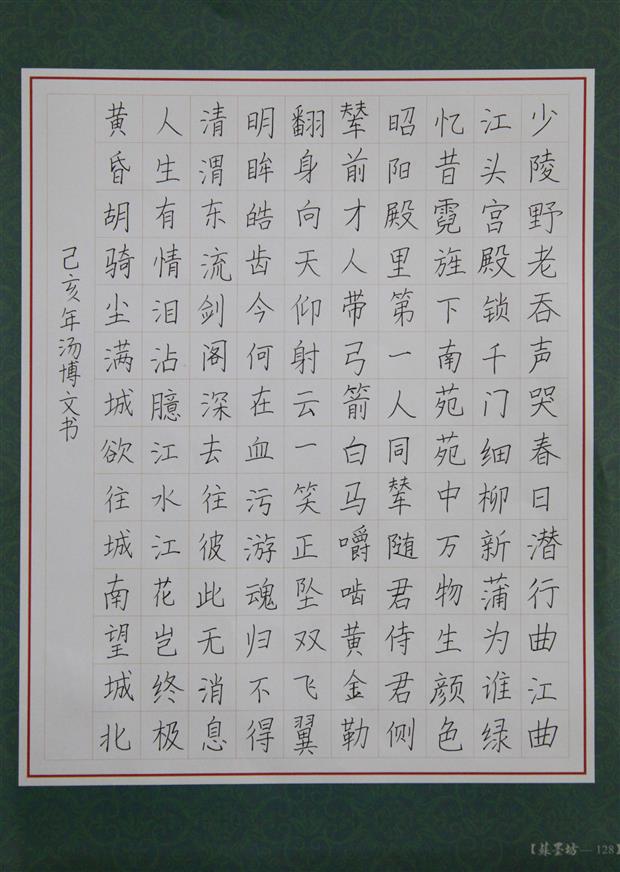 少陵野老吞声哭春日潜行曲江曲
江头宫殿锁千门细柳新蒲为谁绿
忆昔霓旌下南苑苑中万物生颜色
昭阳殿里第一人同辇随君侍君侧
辇前才人带弓箭白马嚼啮黄金勒
翻身向天仰射云一笑正坠双飞翼
明眸皓齿今何在血污游魂归不得
清渭东流剑阁深去住彼此无消息
人生有情泪沾臆江水江花岂终极
黄昏胡骑尘满城欲往城南望城北
己亥年汤博文书
【苏墨坊—128】